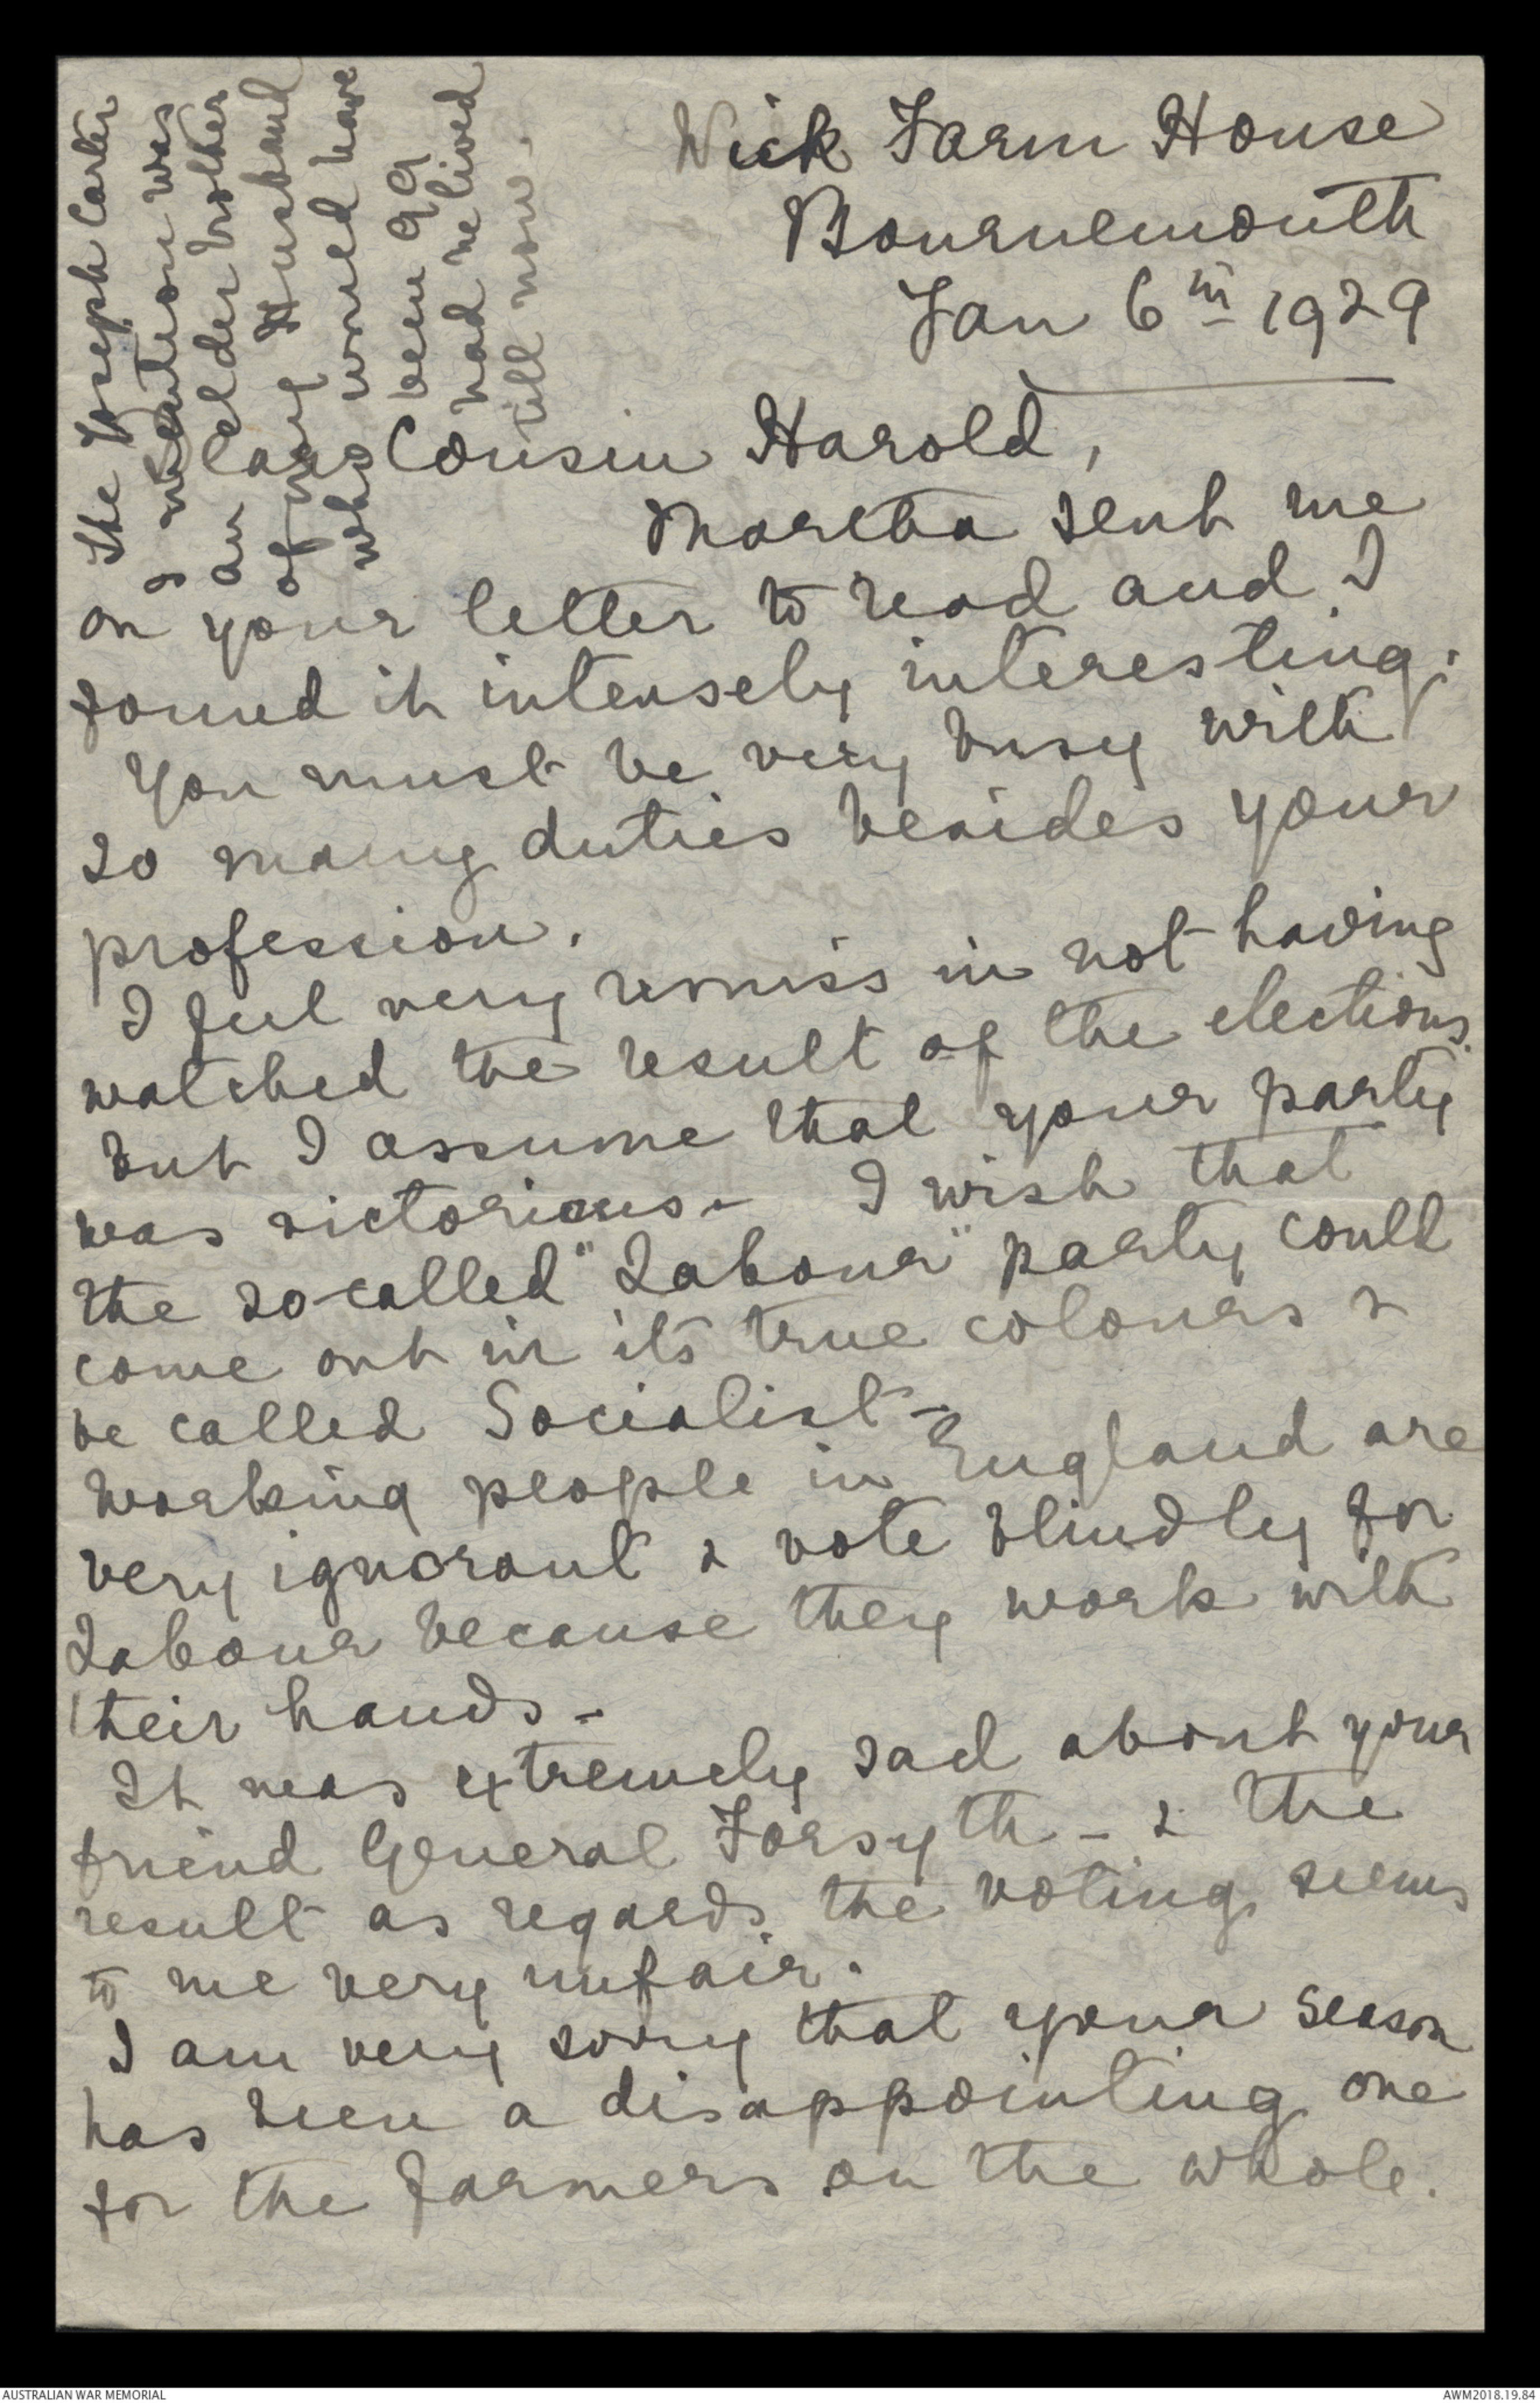 Wick Farm House
Bournemouth
Jan 6th 1929
Cousin Harold,
Martha sent me
on your letter to read and I
found it intensely interesting:
You must be very busy with
so many duties besides your
profession.
I feel very remiss in not having
watched the result of the elections.
but I assume that your party
was victorious - I wish that
the so-called "Labour" party could
come out in its true colours &
be called Socialist -
Working people in England are
very ignorant & vote blindly for
Labour because they work with
their hands -
It was extremely sad about your
friend General Forsyth - & the
result as regards the voting seems
to me very unfair.
I am very sorry that your season
has been a disappointing one
for the farmers on the whole.
The Joseph Carter
I mention was
an elder brother
of my Husband
who would have
been 99
had he lived
till now.
AUSTRALIAN WAR MEMORIAL
AWM2018.19.84